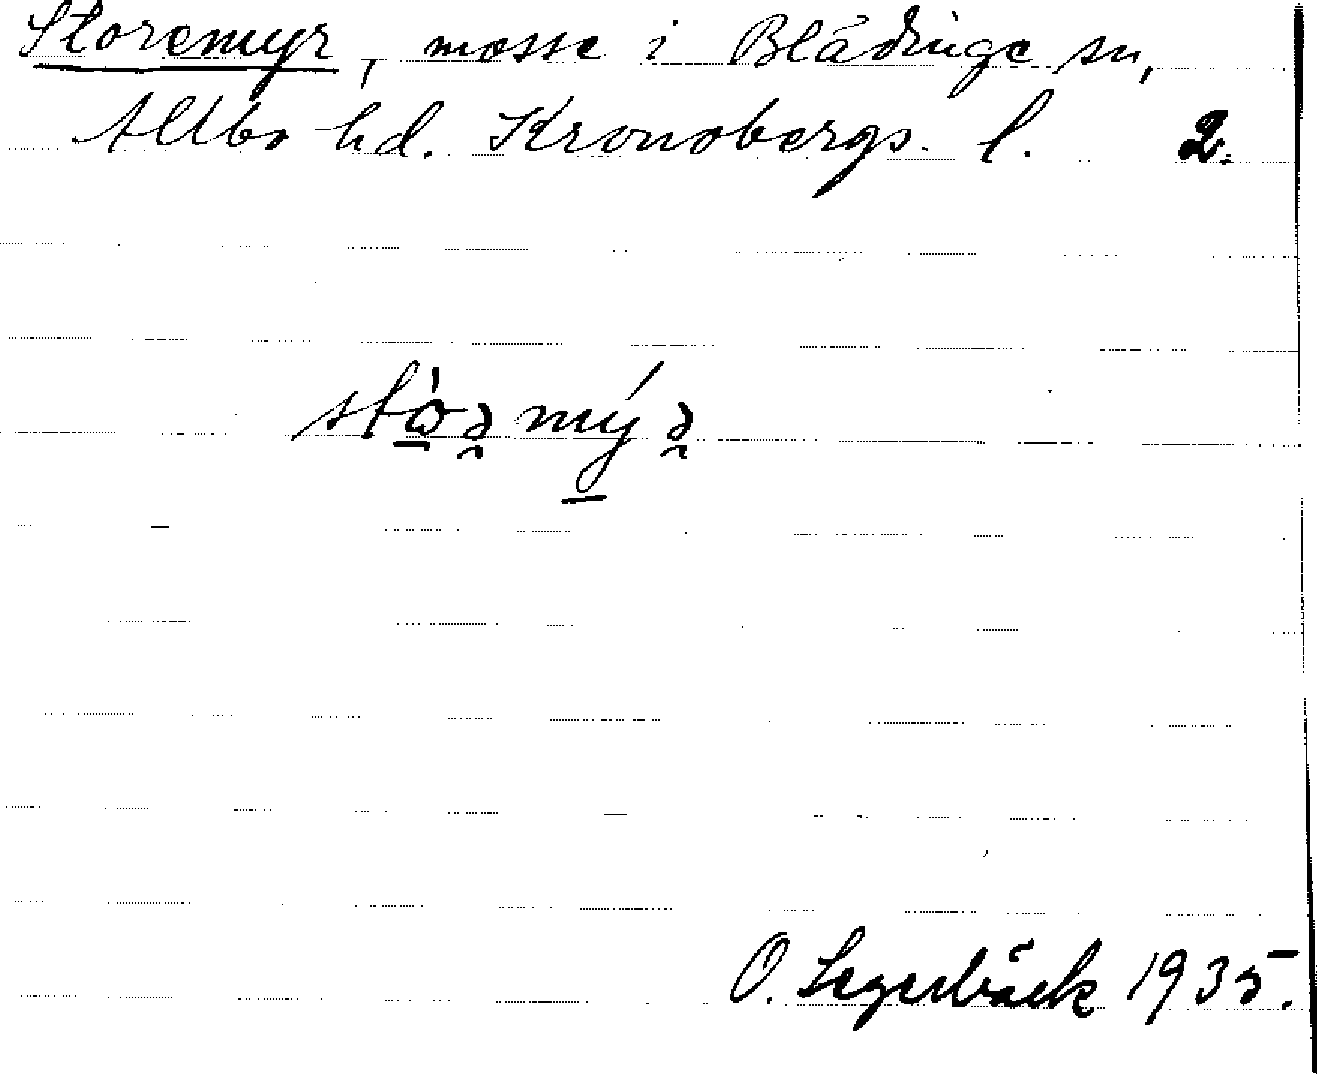 Storemyr, mosse i Blädinge sn,
Allbo hd. Kronobergs. l. 2.
stòə̯ mýə̯
O. Segerbäck 1935.